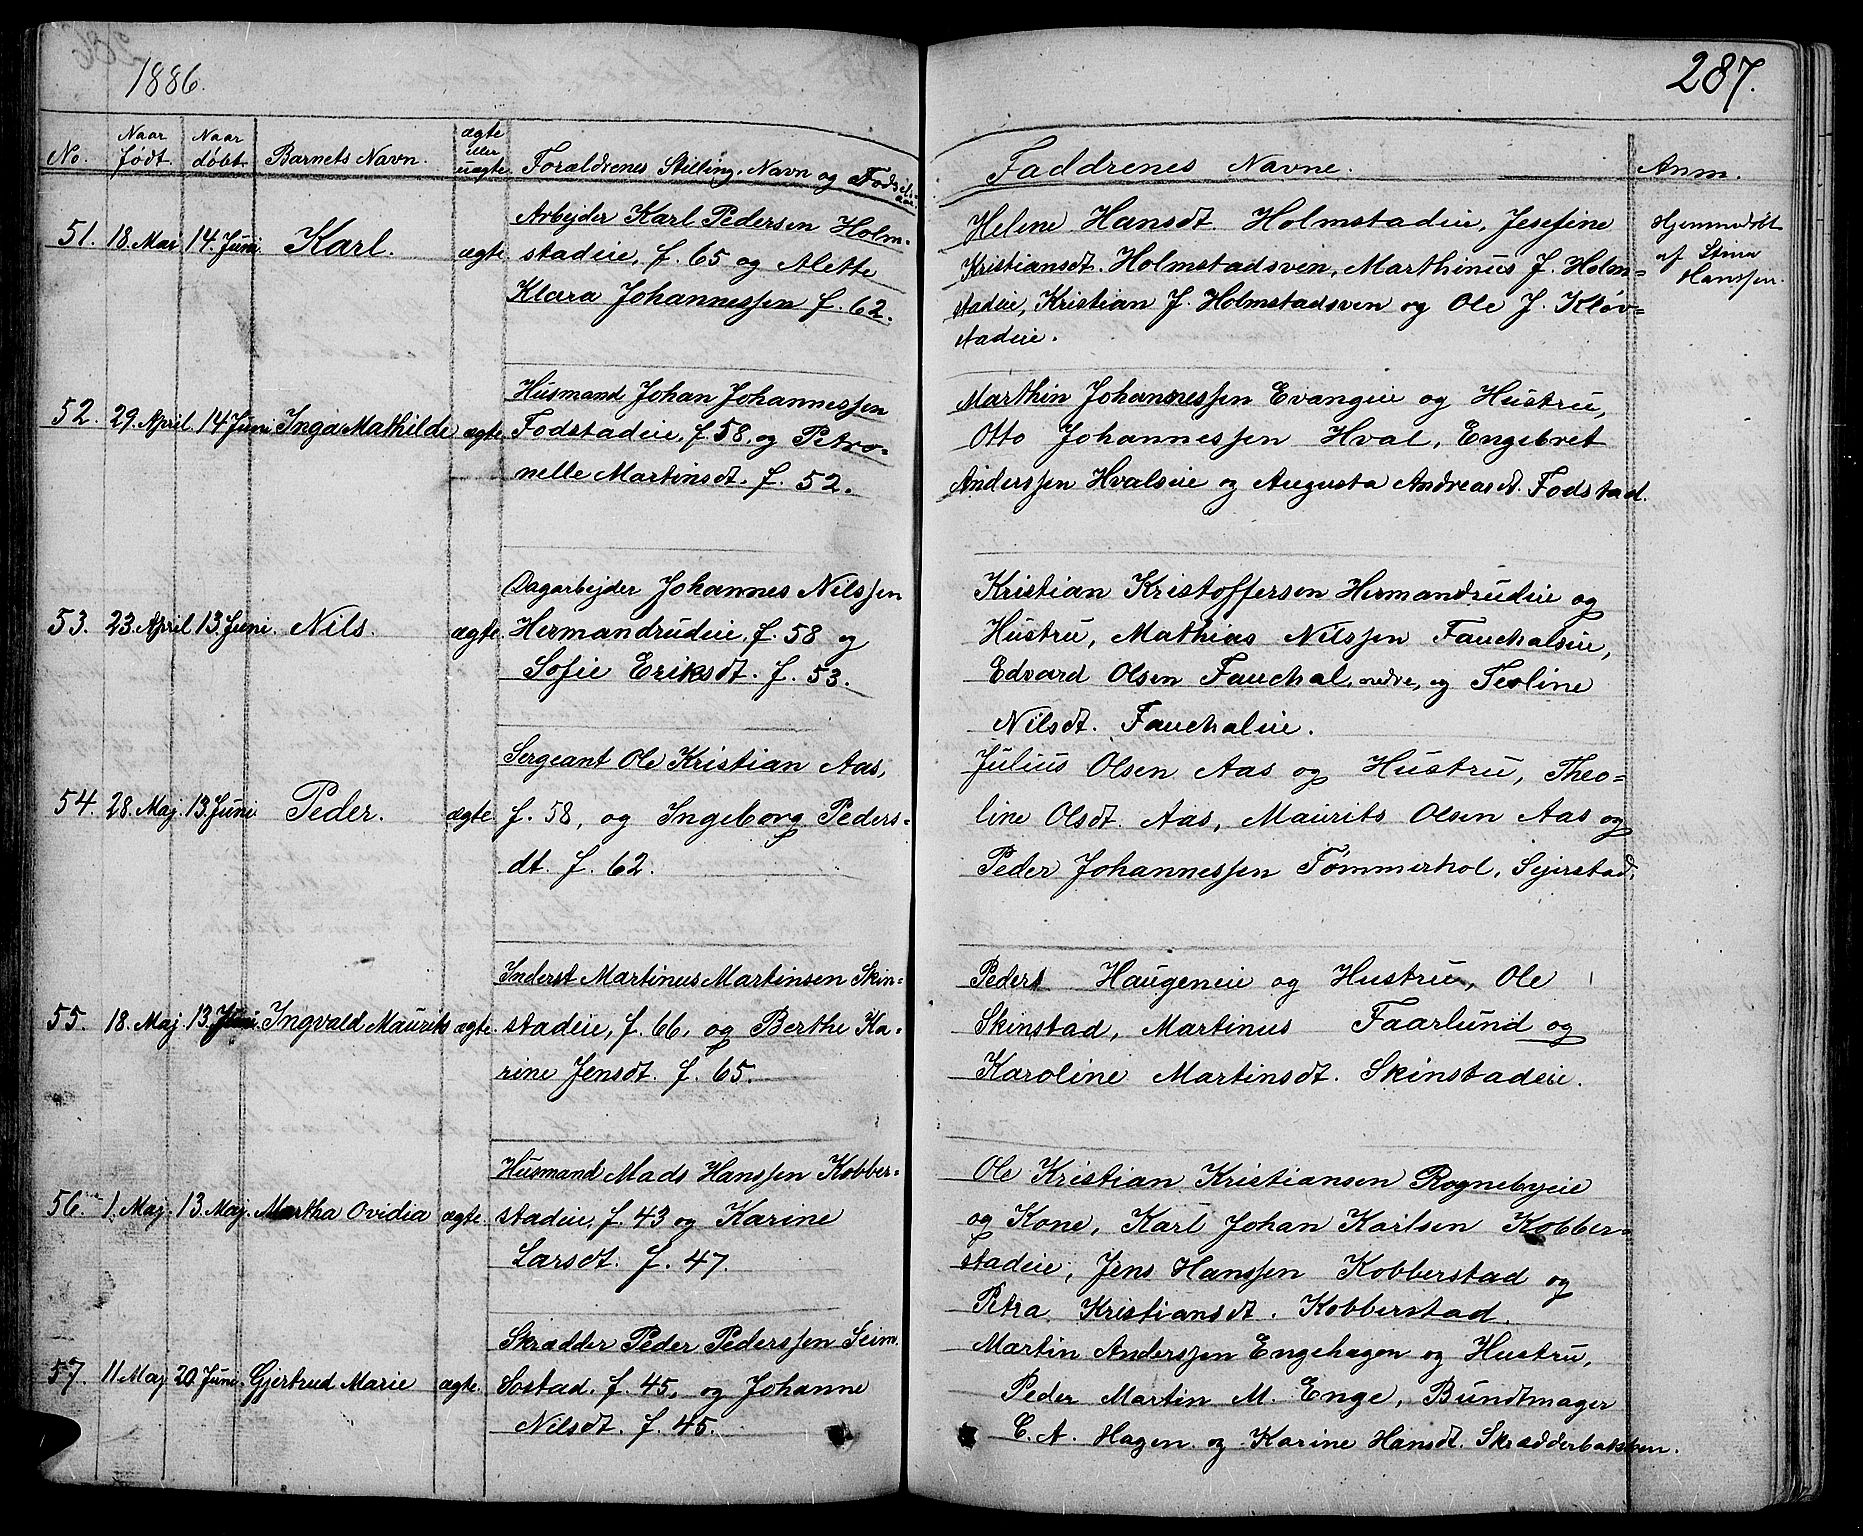 1886.
287.
No. Naar født. Naar døbt. Barnets Navn. ægte eller uægte. Forældrenes Stilling, Navn og Fødselsaar. Faddrenes Navne. Anm.
51. 18. Mar 14. Juni Karl. ægte.
Arbejder Karl Pedersen Holm-
stadeie, f. 65 og Alette
Klara Johannessen f. 62.
Helene Hansdt. Holmstadeie, Jesefine
Kristiansdt. Holmstadsven, Marthinus J. Holm-
stadeie, Kristian J. Holmstadsven og Ole J. Kløv-
stadeie.
Hjemmedøbt
af Stine
Hanssen.
52. 29. April 14 Juni Inga Mathilde ægte.
Husmand Johan Johannessen
Fodstadeie, f. 58, og Petro-
nelle Martinsdt. f. 52.
Marthin Johannessen Evangeie og Hustru,
Otto Johannessen Hval, Engebret
Anderssen Hvalseie og Augusta Andreasdt. Fodstad.
53. 23. April 13. Juni. Nils. ægte
Dagarbejder Johannes Nilssen
Hermandrudeie, f. 58 og
Sofie Eriksdt. f. 53.
Kristian Kristoffersen Hermandrudeie og
Hustru, Mathias Nilssen Fauchalseie,
Edvard Olsen Fauchal nedre, og Teoline
Nilsdt. Fauchaleie.
54. 28. Maj. 13. Juni Peder. ægte.
Sergeant Ole Kristian Aas,
f. 58, og Ingeborg Peders-
dt. f. 62.
Julius Olsen Aas og Hustru, Theo-
line Olsdt. Aas, Maurits Olsen Aas og
Peder Johannessen Tømmerhol, Sejerstad.
55. 18. Maj. 13. Juni Ingvald Maurits ægte.
Inderst Martinus Martinsen Skin-
stadeie, f. 66, og Berthe Ka-
rine Jensdt. f. 65.
Peders Haugeneie og Hustru, Ole
Skinstad, Martinus Faarlund og
Karoline Martinsdt. Skinstadeie.
56. 1. Maj. 13. Maj. Martha Ovidia ægte.
Husmand Mads Hanssen Kobber-
stadeie, f. 43 og Karine
Larsdt. f. 47.
Ole Kristian Kristiansen Rognebyeie
og Kone, Karl Johan Karlsen Kobber-
stadeie, Jens Hanssen Kobberstad og
Petra Kristiansdt. Kobberstad.
57. 11 Maj 20. Juni. Gjertrud Marie ægte.
Skrædder Peder Pederssen Seim.
Sostad. f. 45, og Johanne
Nilsdt. f. 45.
Martin Anderssen Engehagen og Hustru,
Peder Martin M. Enge, Bundtmager
C. A. Hagen og Karine Hansdt. Skrædderbaksven.